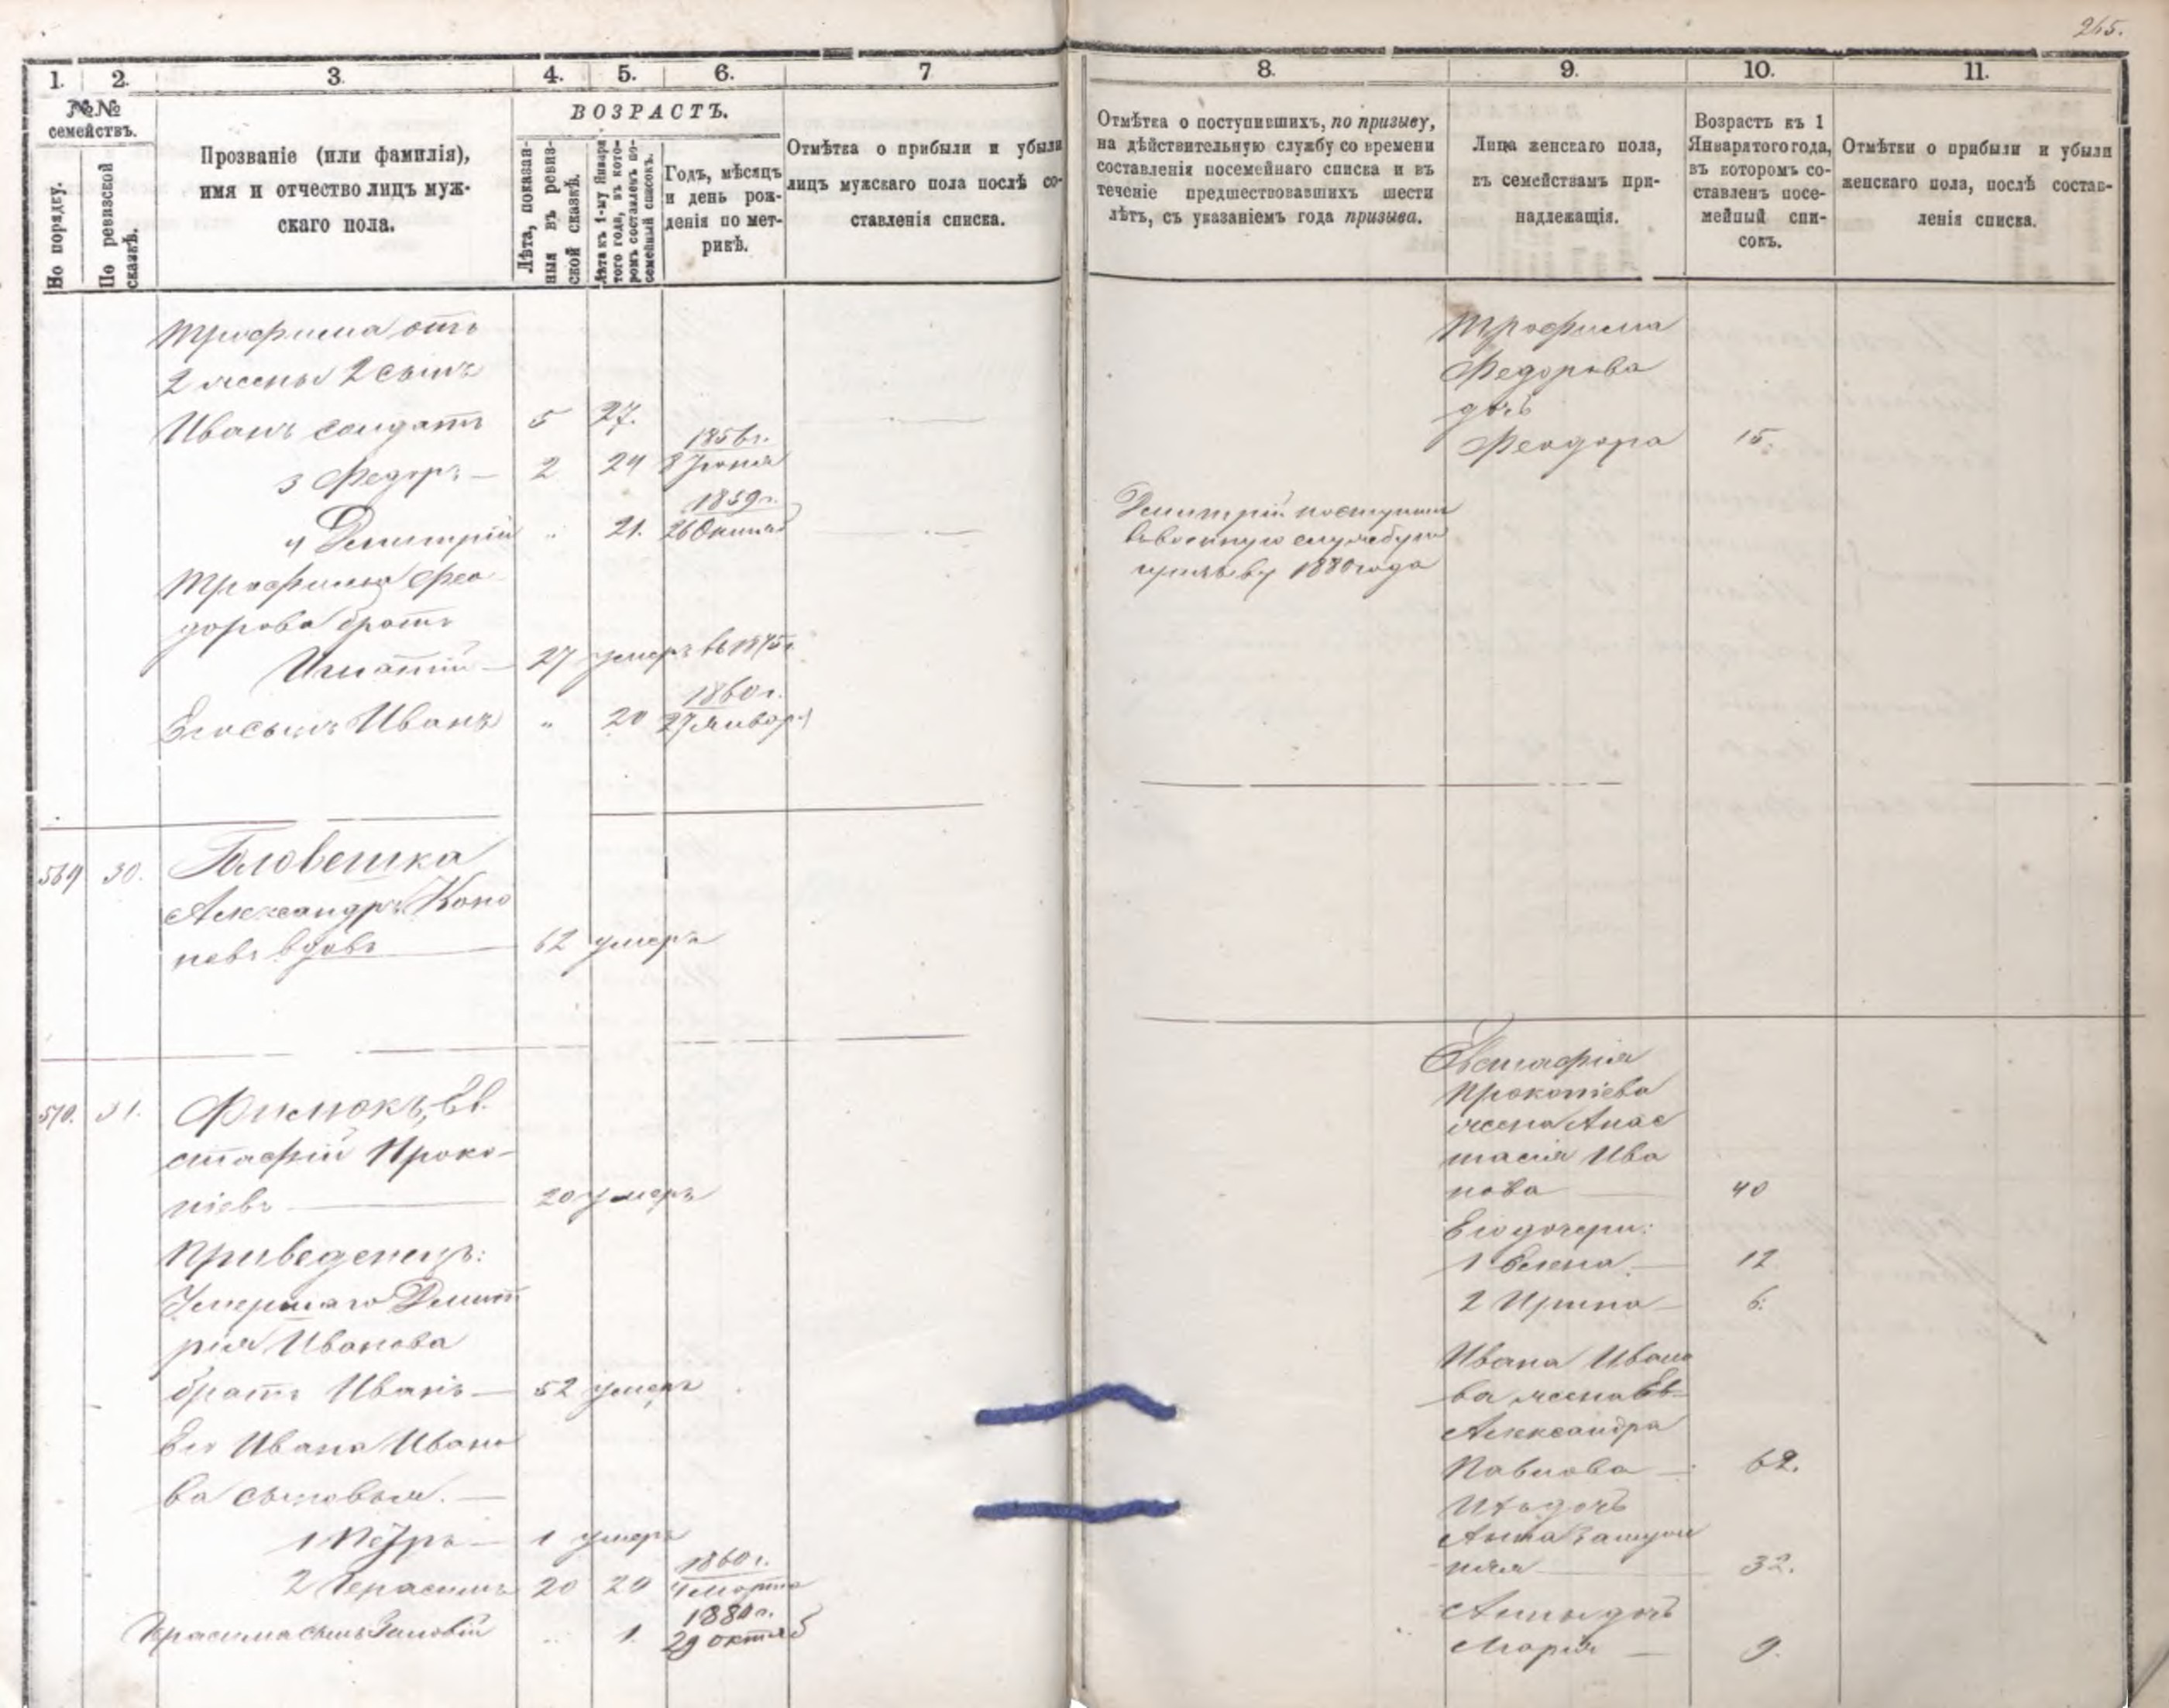 265.
1. 2. 3. 4. 5. 6. 7
№№ семействъ.
По порядку.
По ревизской сказкѣ.
Прозваніе (или фамилія),
имя и отчество лицъ муж-
скаго пола.
ВОЗРАСТЪ.
Лѣта, показан-
ныя въ ревиз-
ской сказкѣ.
Лѣта къ 1-му Января
того года, въ кото-
ромъ составленъ по-
семейный списокъ.
Годъ, мѣсяцъ
и день рож-
денія по мет-
рикѣ.
Отмѣтка о прибыли и убыли
лицъ мужскаго пола послѣ со-
ставленія списка.
Трофима отъ
2 жены 2 сынъ
Иванъ солдатъ 5 27.
1856 г.
3 Федоръ — 2 24 8 Іюня
1859 г.
4 Димитрій " 21. 26 Октяб
Трофима Фео
дорова братъ
Игнатій — 27 умеръ въ 1875 г.
1860 г.
Его сынъ Иванъ " 20 27 Январ
569 30. Головешка
Александръ Коно
невъ вдовъ 62 умеръ
570. 31. Филюкъ, Ев
стафій Проко-
піевъ — 20 умеръ
Приведенецъ:
Умершаго Димит
рія Иванова
братъ Иванъ — 52 умеръ
Его Ивана Ивано
ва сыновья. —
1 Петръ — 1 умеръ
1860 г.
2 Герасимъ 20 20 4 Марта
1880 г.
Герасима сынъ Зиновій " 1. 29 Октяб
8. 9. 10. 11.
Отмѣтка о поступившихъ, по призыву,
на дѣйствительную службу со времени
составленія посемейнаго списка и въ
теченіе предшествовавшихъ шести
лѣтъ, съ указаніемъ года призыва.
Лица женскаго пола,
къ семействамъ при-
надлежащія.
Возрастъ къ 1
Января того года,
въ которомъ со-
ставленъ посе-
мейный спи-
сокъ.
Отмѣтки о прибыли и убыли
женскаго пола, послѣ состав-
ленія списка.
Трофима
Федорова
дочь
Феодора 15.
Димитрій поступилъ
въ военную службу по
призыву 1880 года
Евстафія
Прокопіева
жена Анас
тасія Ива
нова — 40
Его дочери:
1 Елена — 12
2 Ирина — 6.
Ивана Ивано
ва жена Ев-
Александра
Павлова — 62.
Ихъ дочь
Анна Замуж
няя — 32.
Анны дочь
Марія — 9.